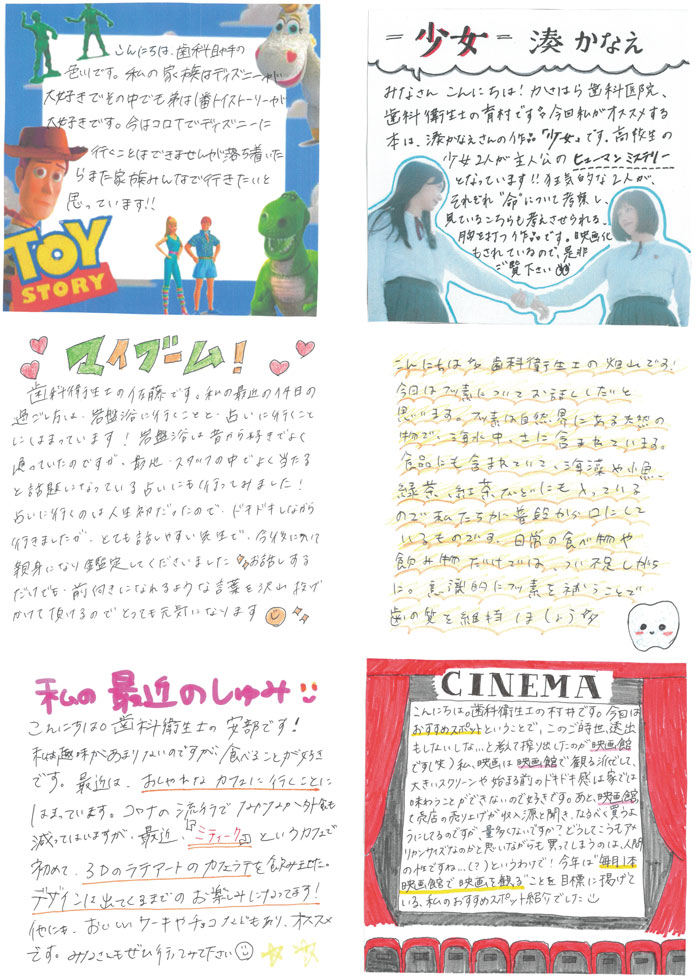 こんにちは、歯科助手の
色川です。私の家族はディズニーが
大好きでその中でも弟は1番トイストーリーが
大好きです。今はコロナでディズニーに
行くことはできませんが落ち着いた
らまた家族みんなで行きたいと
思っています!!
TOY
STORY
= 少女 = 湊かなえ
みなさん こんにちは！かさはら歯科医院、
歯科衛生士の育村です。今回私がオススメする
本は、湊かなえさんの作品「少女」です。高校生の
少女2人が主人公のヒューマンミステリー
となっています!!狂気的な2人が、
それぞれ"命"について考察し、
見ているこちらも考えさせられる、
胸を打つ作品です。映画化
もされているので、是非
ご覧下さい
マイブーム！
歯科衛生士の佐藤です。私の最近の休日の
過ごし方は、岩盤浴に行くことと、占いに行くこと
にはまっています！岩盤浴は昔から好きでよく
通っていたのですが、最近、スタッフの中でよく当たる
と話題になっている占いにも行ってみました！
占いに行くのは人生初だったので、ドキドキしながら
行きましたが、とても話しやすい先生で、今後について
親身になり鑑定してくださいました お話しする
だけでも、前付きになれるような言葉を沢山投げ
かけて頂けるのでとっても元気になります
こんにちは 歯科衛生士の畑山です！
今回はフッ素についてお話ししたいと
思います。フッ素は自然界にある天然の
物で、海水中、土に含まれています。
食品にも含まれていて、海藻や小魚、
緑茶、紅茶などにも入っている
ので私たちが普段から口にして
いるものです。日常の食べ物や
飲み物だけでは、つい不足しがち
に。意識的にフッ素を補うことで
歯の質を維持しましょう
私の最近のしゅみ
こんにちは。歯科衛生士の安部です！
私は趣味があまりないのですが、食べることが好き
です。最近は、おしゃれなカフェに行くことに
はまっています。コロナの流行でなかなか外食も
減ってはいますが、最近、『ミティーク』というカフェで
初めて、3Dのラテアートのカフェラテを飲みました。
デザインは出てくるまでのお楽しみになってます！
他にも、おいしいケーキやチョコなどもあり、オススメ
です。みなさんもぜひ行ってみて下さい
CINEMA
こんにちは。歯科衛生士の村井です。今回は
おすすめスポットということで、このご時世、遠出
もしないしな…と考えて搾り出したのが映画館
です(笑)私、映画は映画館で観る派でして、
大きいスクリーンや始まる前のドキドキ感は家では
味わうことができないので好きです。あと、映画館
って売店の売り上げが収入源と聞き、なるべく買うよう
にしてるのですが、量多くないですか？どうしてこうもアメ
リカンサイズなのかと思いながらも買ってしまうのは、人間
の性ですね…(?)というわけで！今年は"毎月1本
映画館で映画を観る"ことを目標に掲げて
いる、私のおすすめスポット紹介でした